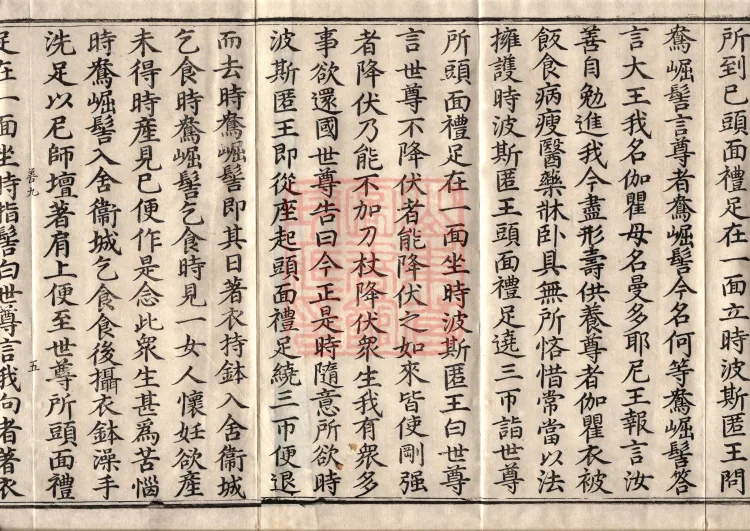 所到已頭面禮足在一面立時波斯匿王問
鴦崛髻言尊者鴦崛髻今名何等鴦崛髻答
言大王我名伽瞿母名曼多耶尼王報言汝
善自勉進我今盡形壽供養尊者伽瞿衣被
飯食病瘦醫藥牀卧具無所悋惜常當以法
擁護時波斯匿王頭面禮足遶三帀詣世尊
所頭面禮足在一面坐時波斯匿王白世尊
言世尊不降伏者能降伏之如來皆使剛强
者降伏乃能不加刀杖降伏衆生我有衆多
事欲還國世尊告曰今正是時隨意所欲時
波斯匿王即從座起頭面禮足繞三帀便退
而去時鴦崛髻即其日著衣持鉢入舍衞城
乞食時鴦崛髻乞食時見一女人懷妊欲產
未得時產見已便作是念此衆生甚爲苦惱
時鴦崛髻入舍衞城乞食食後攝衣鉢澡手
洗足以尼師壇著肩上便至世尊所頭面禮
善九
五
足在一面坐時指髻白世尊言我向者著衣